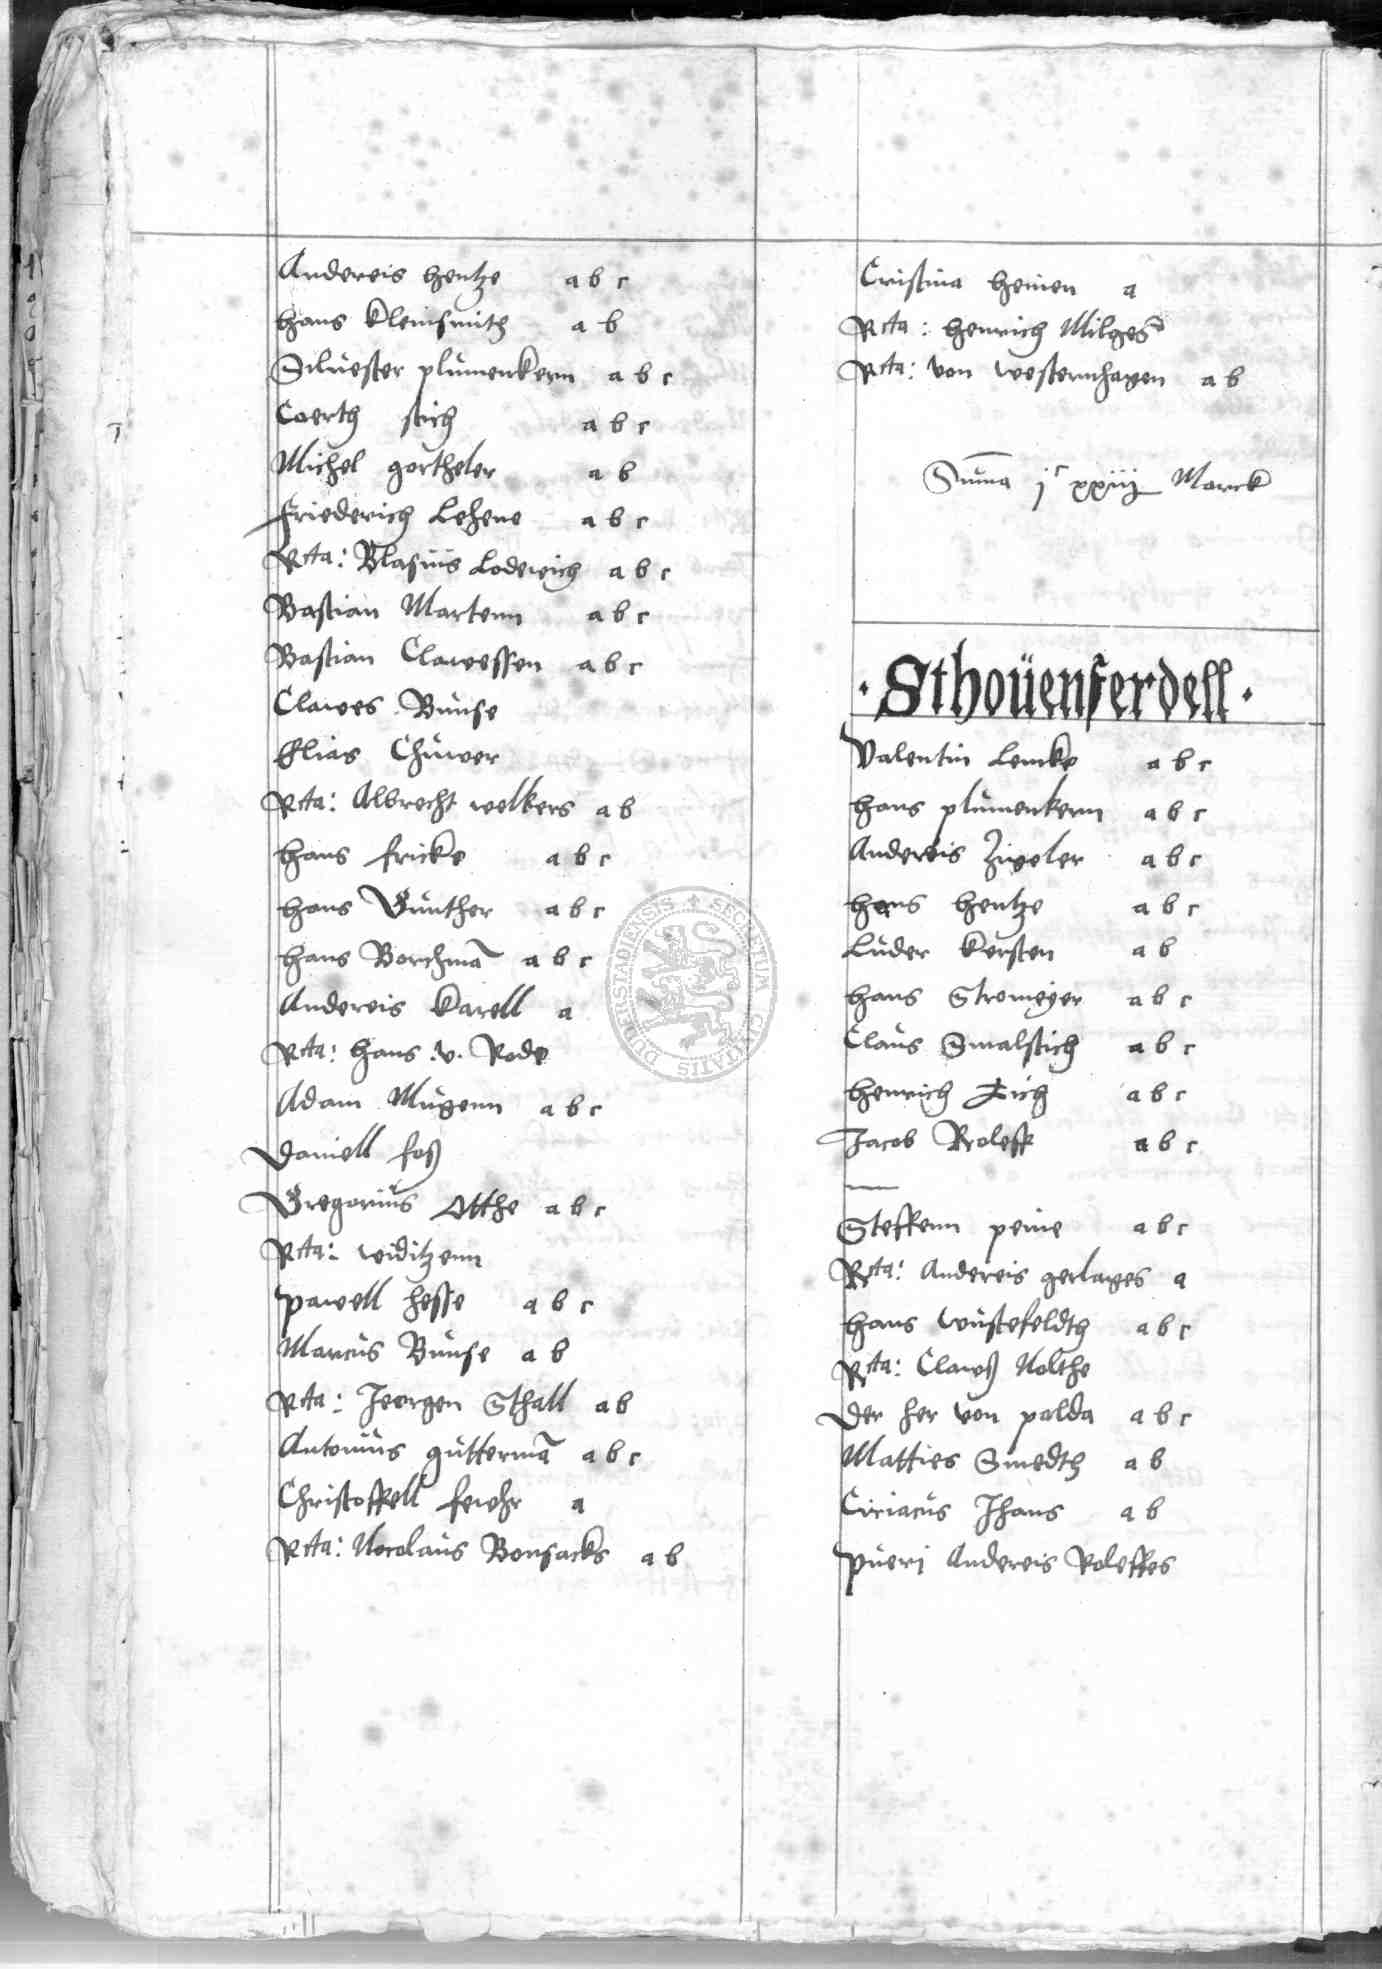 Andereis Hentze a b c
Hans Kleinsmith a b
Siluester plumenkern a b c
Coerth stich a b c
Michel gortheler a b
Friederich Lehene a b c
Rcta: Blasius Loderich a b c
Bastian Martenn a b c
Bastian Clawessen a b c
Clawes Bunse
Elias Chuwer
Rcta: Albrecht welkers a b
Hans fricke a b c
Hans Gunther a b c
Hans Borchmā a b c
Andereis Karell a
Rcta: Hans .v. Rode
Adam Mugenn a b c
Daniell foß
Gregorius Otthe a b c
Rcta: widitzenn
pawell Hesse a b c
Marcus Bunse a b
Rcta: Jeorgen Sthall a b
Antonius guttermā a b c
Christoffell
a
Rcta: Nicolaus Bonsacks a b
Cristina Heinen a
Rcta: Henrich Milges
Rcta: von westernhagen a b
Suma jc xxiij Marck
· Sthoüenferdell ·
Valentin Lemke a b c
Hans plumenkern a b c
Andereis Zigeler a b c
Hans Hentze a b c
Luder Kersten a b
Hans Stromeyer a b c
Claus Smalstich a b c
Henrich Zich a b c
Jacob Roleff a b c
Steffenn peine a b c
Rcta: Andereis gerlages a
Hans wustefeldth a b c
Rcta: Clawß Nolthe
Der her von polda a b c
Matties Smedth a b
Ciriacus Jhans a b
Pueri Andereis Roleffes
SECRETUM CIVITATIS DUDERSTADIENSIS